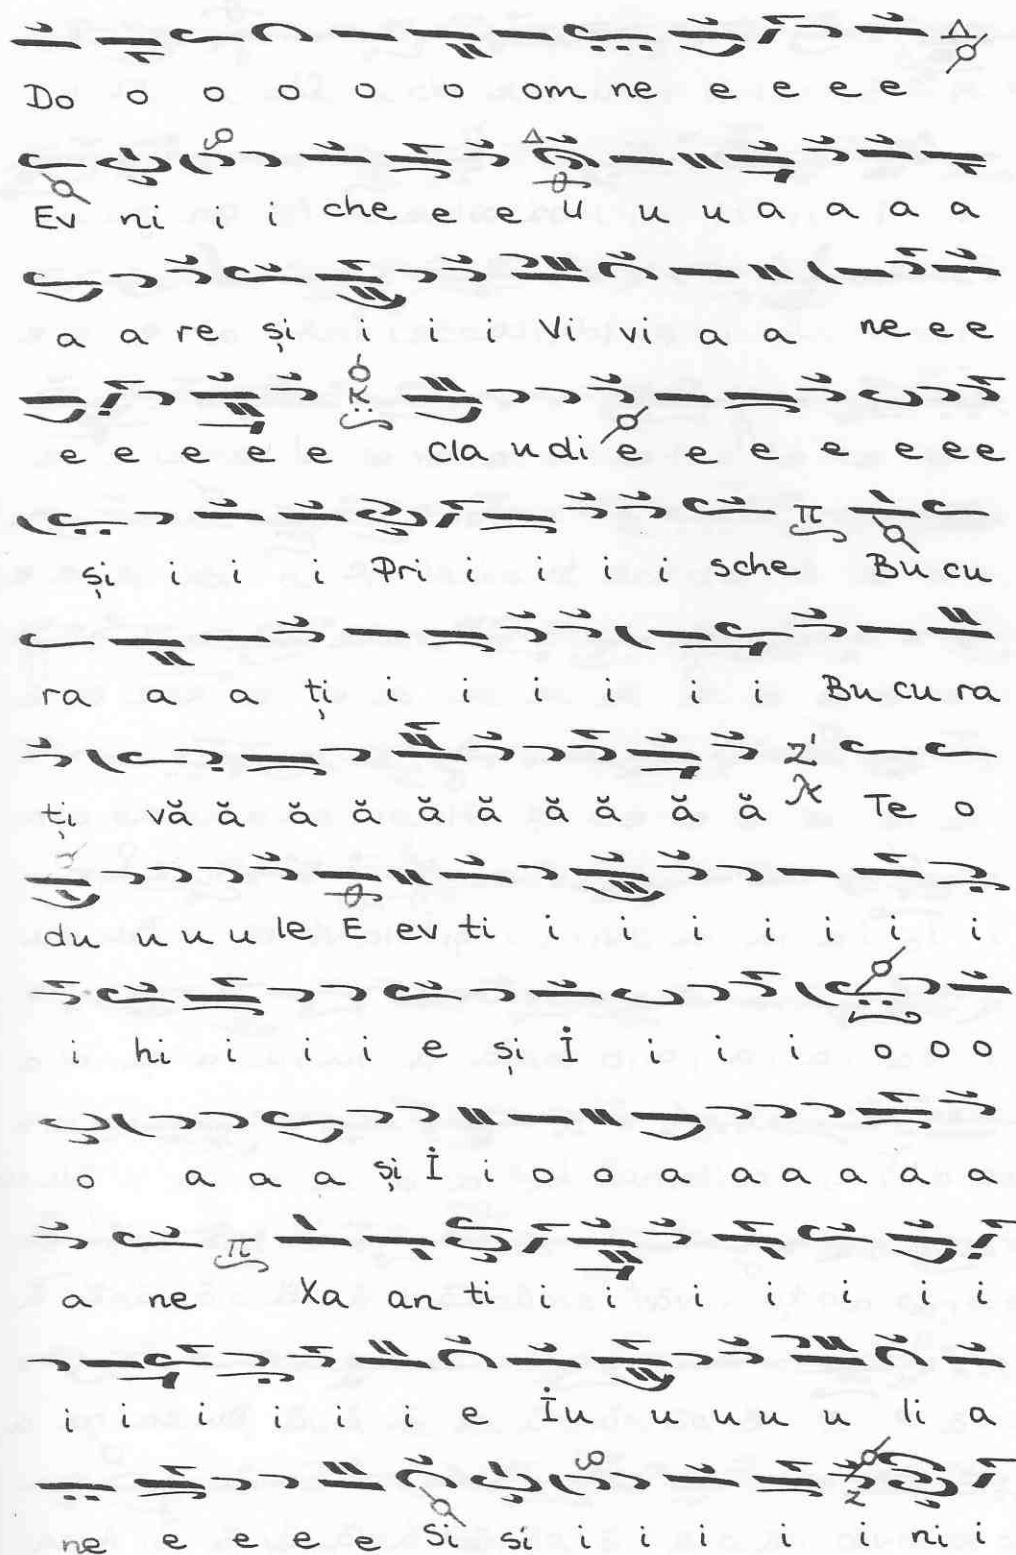 Do o o o o o om ne e e e e
Ev ni i i che e e U u u a a a a
a a re și i i i Vi vi a a ne e e
e e e e e cla u di e e e e e e e
și i i i Pri i i i i sche Bu cu
ra a a ți i i i i i i Bu cu ra
ți vă ă ă ă ă ă ă ă ă ă Te o
du u u u le E ev ti i i i i i i i
i hi i i i e și İ i i i o o o
o a a a și İ i a a a a a a a
a ne Xa an ti i i i i i i i
i i i i i e İu u u u u li a
ne e e e e Si si i i i i i ni i